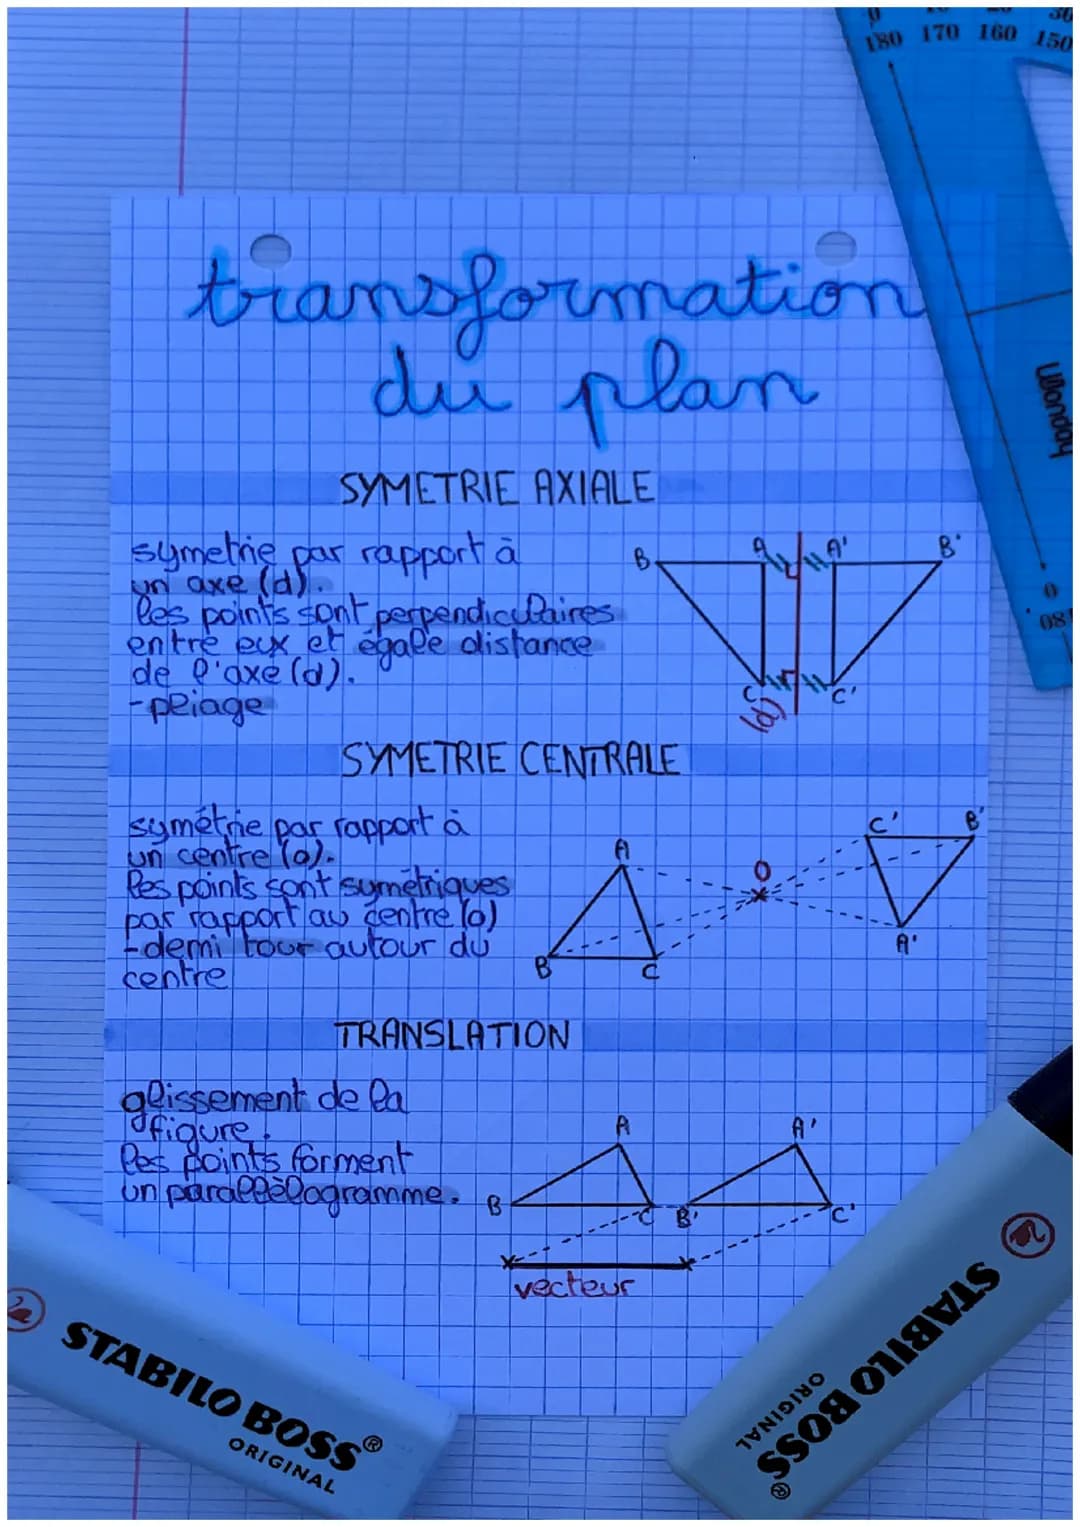 0 10 20 30
180 170 160 150
transformation
du plan
SYMETRIE AXIALE
symetrie par rapport à
un axe (d).
les points sont perpendiculaires
entre eux et égale distance
de l'axe (d).
-pliage
B A A' B'
C C'
(d)
SYMETRIE CENTRALE
symétrie par rapport à
un centre (o).
les points sont symétriques
par rapport au centre (o)
-demi tour autour du
centre
A B C
O
C' B'
A'
TRANSLATION
glissement de la
figure.
les points forment
un parallèlogramme.
A A'
B C B' C'
vecteur
STABILO BOSS®
ORIGINAL
STABILO BOSS®
ORIGINAL
0